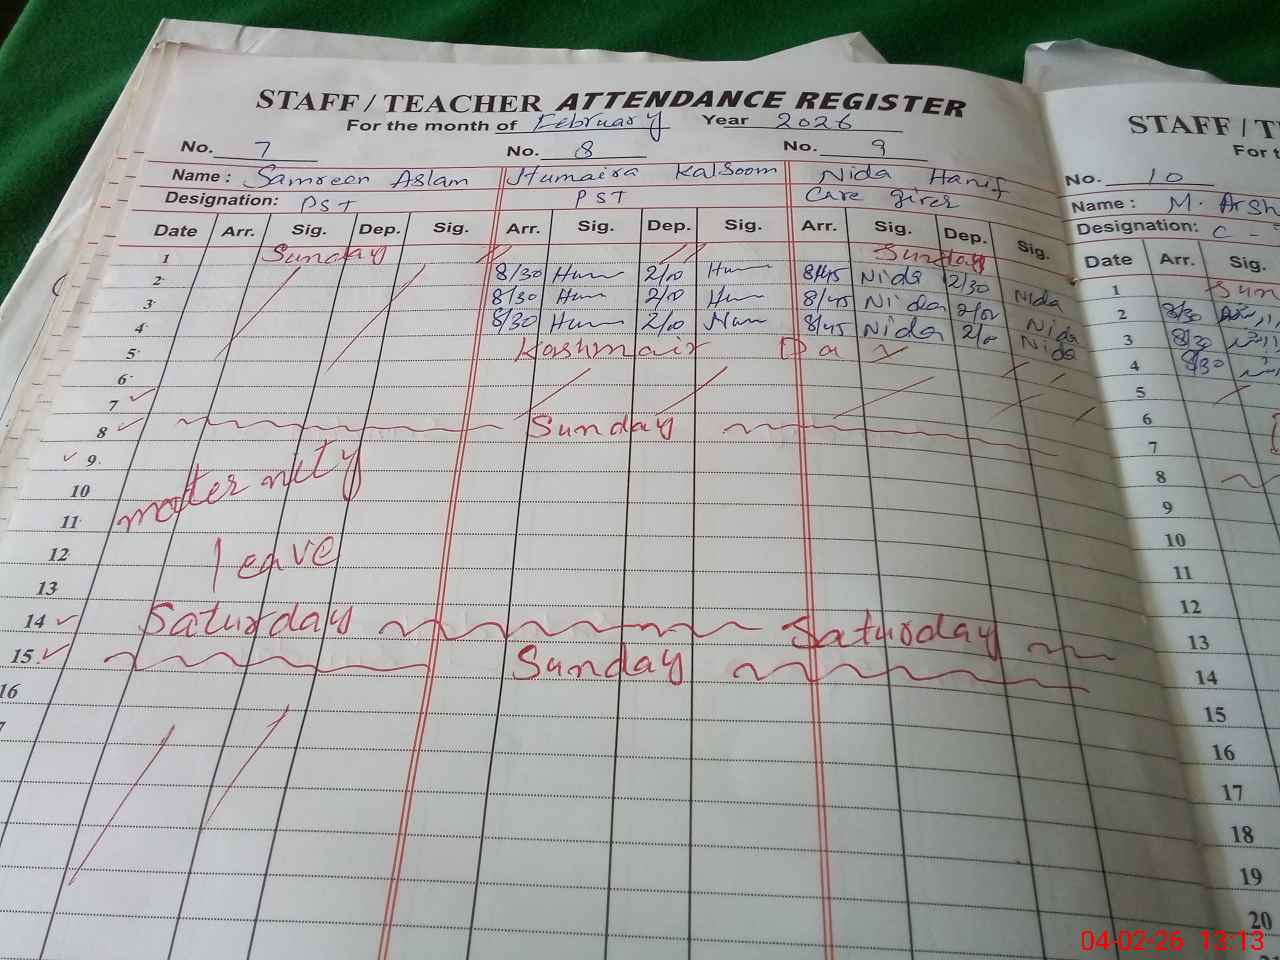 STAFF / TEACHER ATTENDANCE REGISTER
For the month of February Year 2026
No. 7 No. 8 No. 9
Name: Samreen Aslam Humaira Kalsoom Nida Hanif
Designation: PST PST Care giver
Date Arr. Sig. Dep. Sig. Arr. Sig. Dep. Sig. Arr. Sig. Dep. Sig.
1 Sunday Sunday
2 8/30 Hum 2/00 Hum 8/45 Nida 2/30 Nida
3 8/30 Hum 2/00 Hum 8/45 Nida 2/00 Nida
4 8/30 Hum 2/00 Hum 8/45 Nida 2/0 Nida
5 Kashmair Day
6
7
8 Sunday
9 maternity
10
11
12 leave
13
14 Saturday Saturday
15 Sunday
16
7
STAFF / T
For t
No. 10
Name: M. Arsh
Designation: C -
Date Arr. Sig.
1 Sun
2 8/30
3 8/30
4 8/30
5
6
7
8
9
10
11
12
13
14
15
16
17
18
19
20
04-02-26 13:13